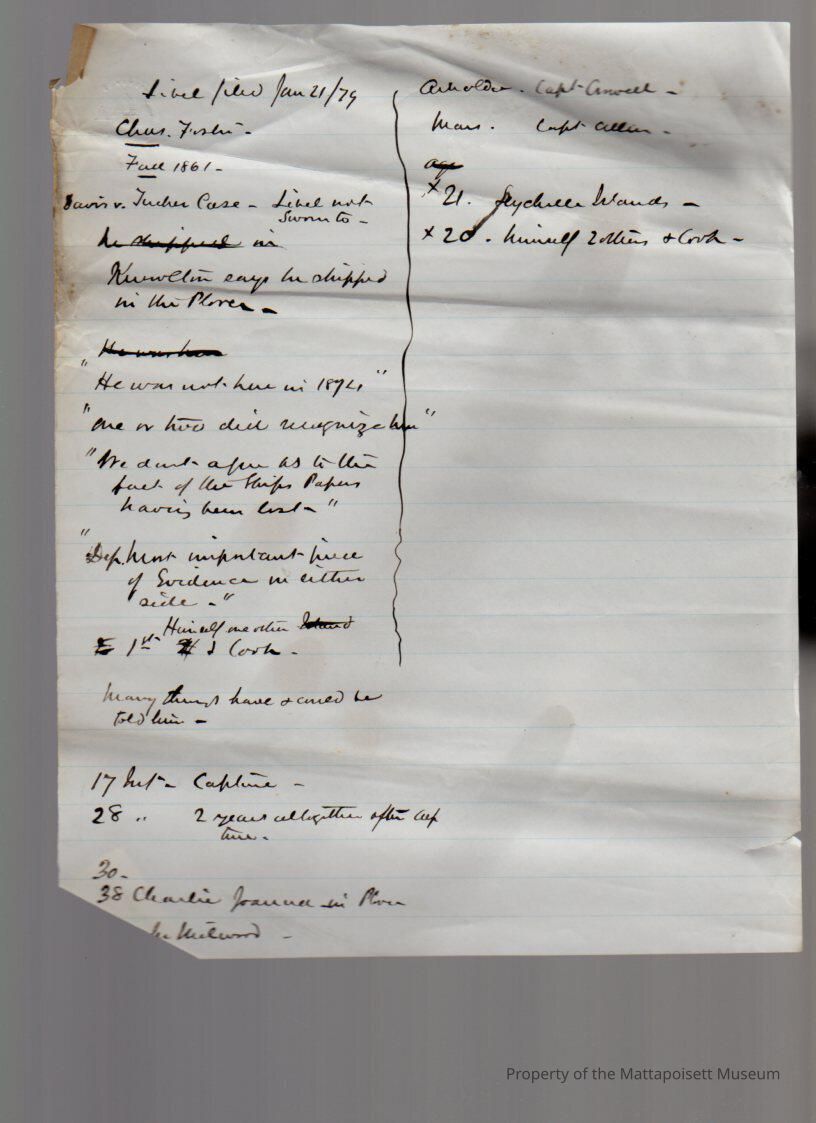 Libel filed Jan 21/79
Chas. Foster -
Fall 1861 -
Davis v. Tucker Case - Libel not
Sworn to -
he shipped in
Knowlton says he shipped
in the Plover -
He was here
"He was not here in 1874"
"One or two did recognize him"
"We dont agree as to the
fact of the Ships Papers
having been lost - "
"Dep. Most important piece
of Evidence in either
side - "
Himself one other Island
1st & Cook -
Many things have & could be
told him -
17 Int - Capture -
28 " 2 years altogether after cap
ture -
30 -
38 Charlie Joanna in Plover
Milwood -
Capt -
Mars. Capt Allen -
age
x 21. Seychelle Islands -
x 20. himself 2 others & Cook -
Property of the Mattapoisett Museum